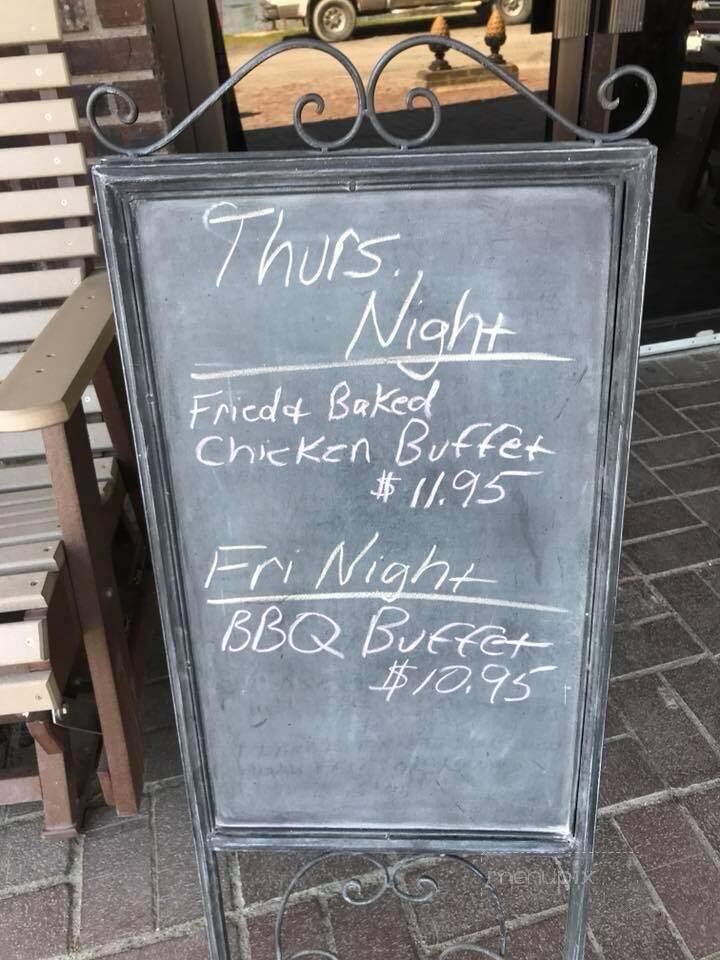 Thurs.
Night
Fried & Baked
Chicken Buffet
$11.95
Fri Night
BBQ Buffet
$10.95
menupix